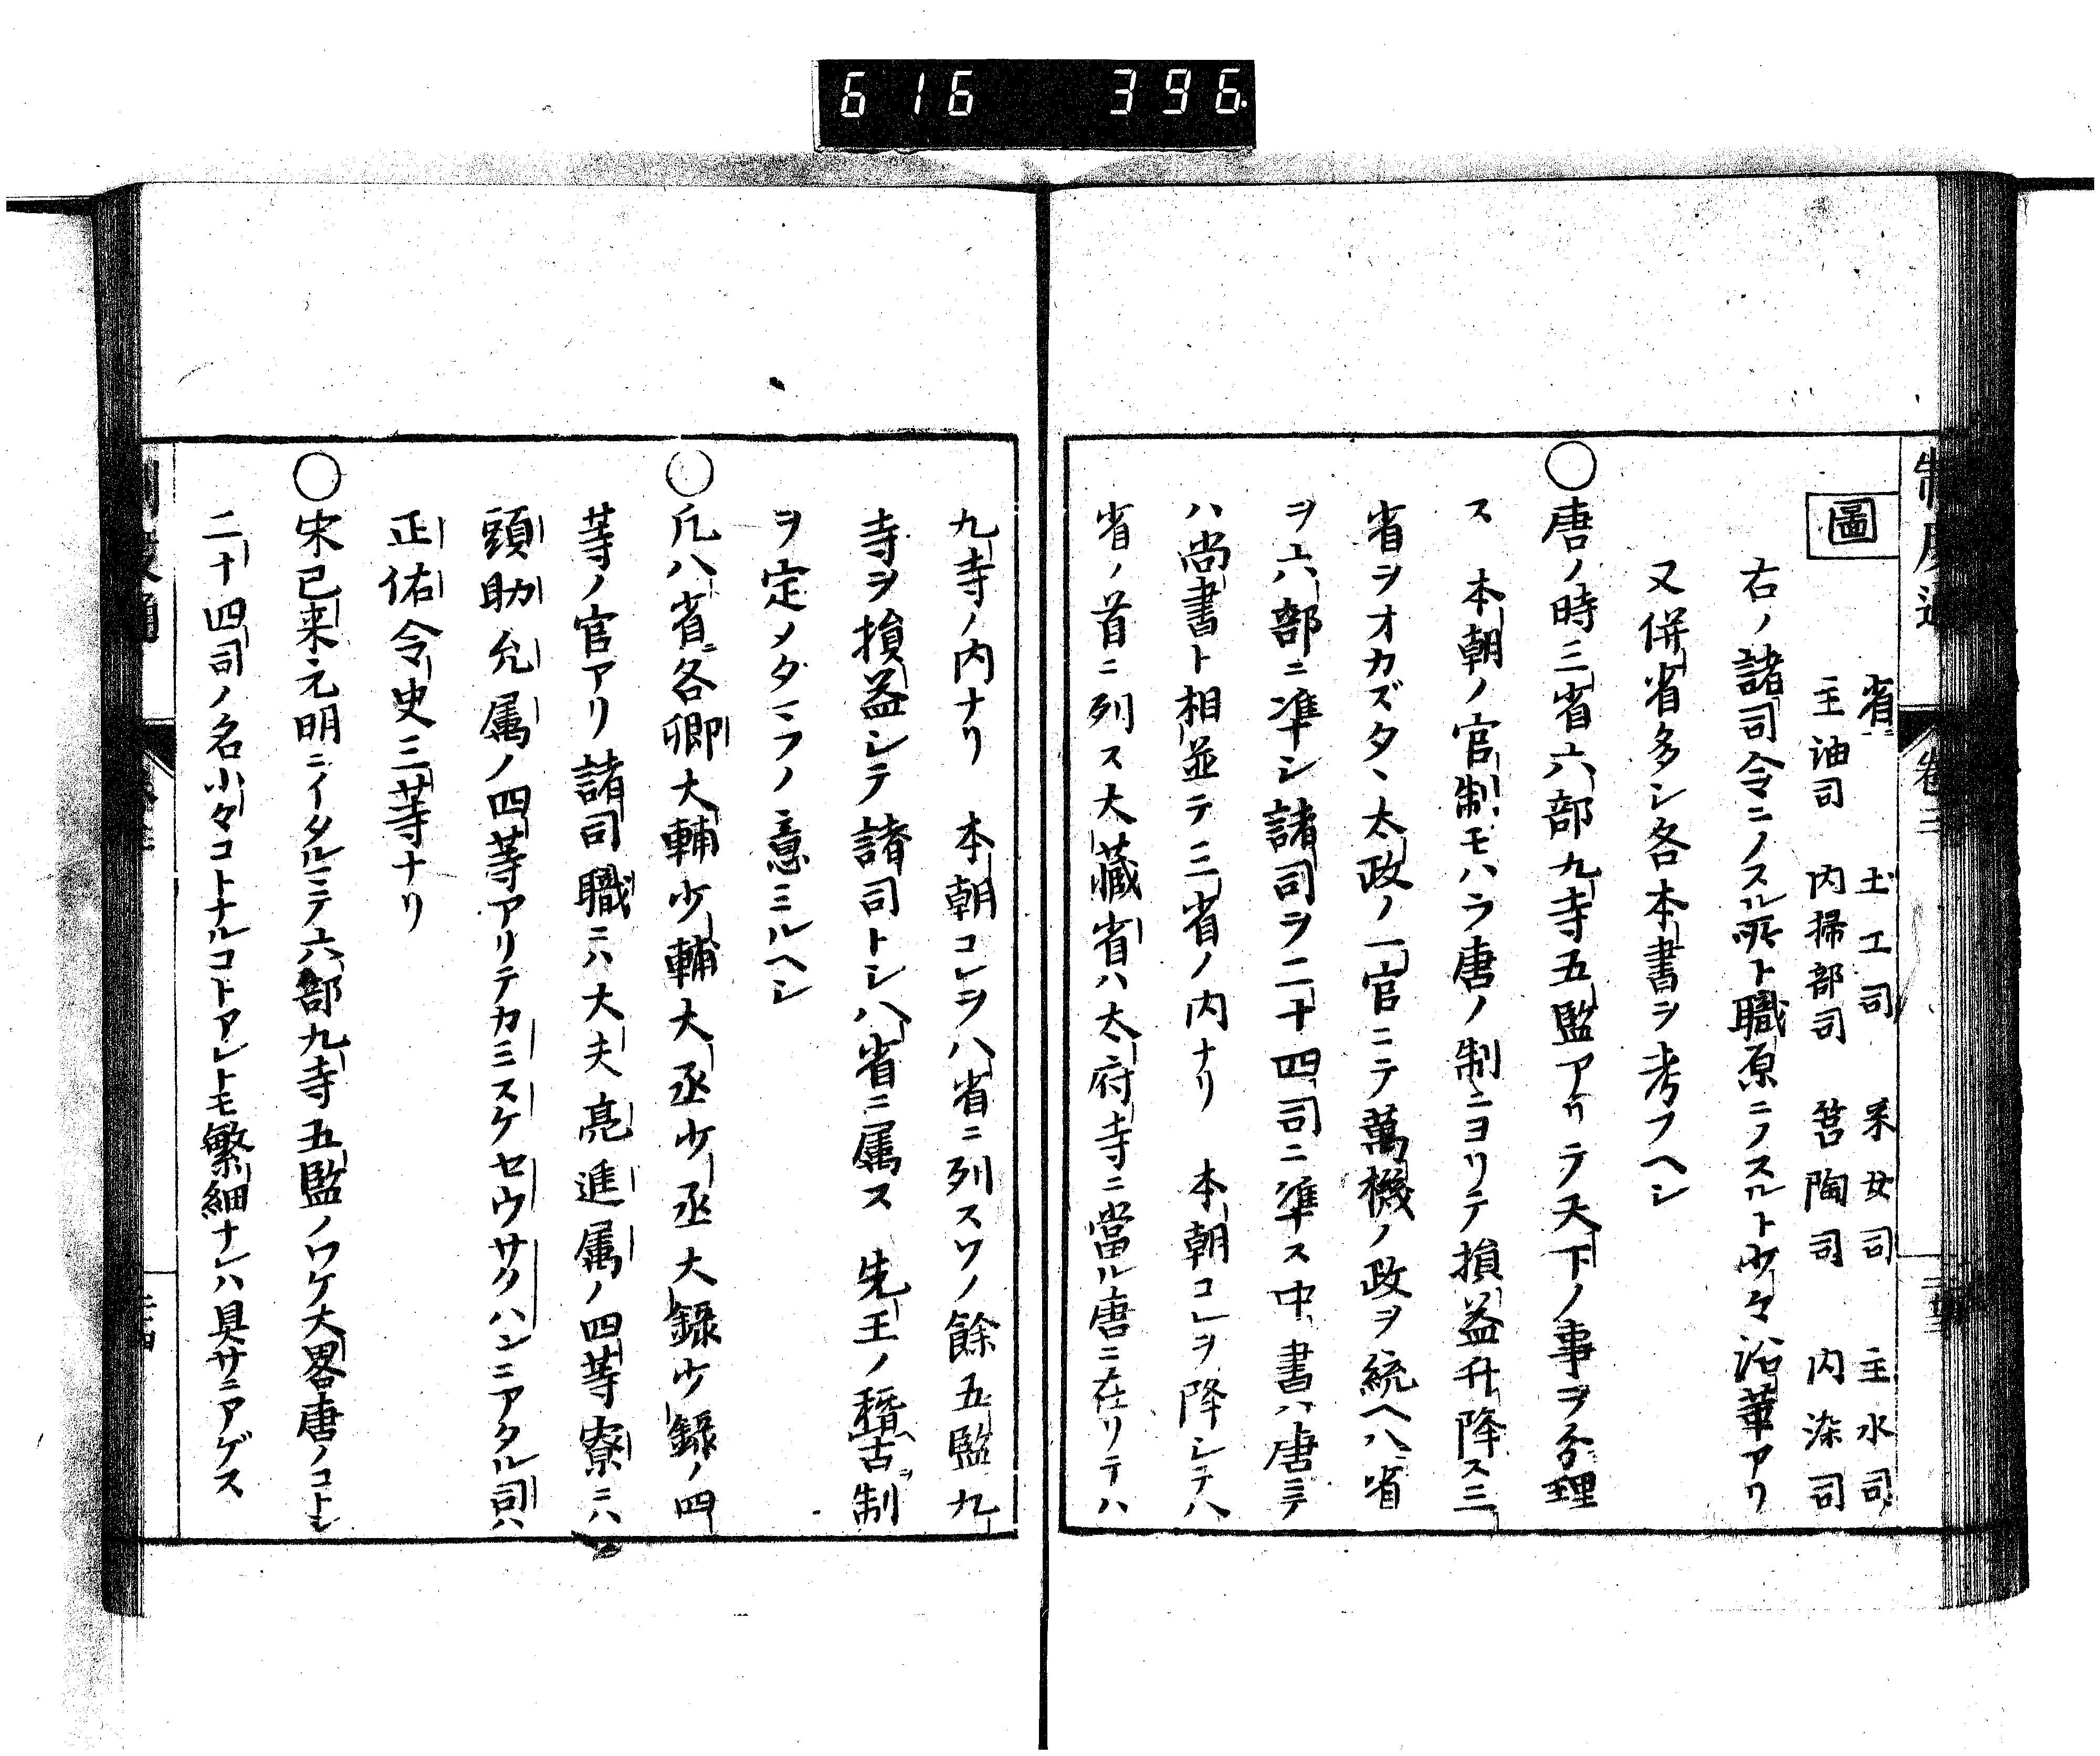 616 396
制度通
卷三
圖
省 土工司 采女司 主水司
主油司 内掃部司 筥陶司 内染司
右ノ諸司令ニノスル所ト職原ニノスルト少々沿革アリ
又併省多シ各本書ヲ考フヘシ
〇唐ノ時三省六部九寺五監アリテ天下ノ事ヲ分理
ス 本朝ノ官制モハラ唐ノ制ニヨリテ損益升降ス三
省ヲオカズタヽ太政ノ一官ニテ萬機ノ政ヲ統ヘ八省
ヲ六部ニ準シ諸司ヲ二十四司ニ準ス中書ハ唐ニテ
ハ尚書ト相並テ三省ノ内ナリ 本朝コレヲ降シテ八
省ノ首ニ列ス大藏省ハ太府寺ニ當ル唐ニ在リテハ
九寺ノ内ナリ 本朝コレヲ八省ニ列スソノ餘五監九
寺ヲ損益シテ諸司トシ八省ニ属ス 先王ノ稽古ヲ制
ヲ定メタマフノ意ミルヘシ
〇凡八省ニ各卿大輔少輔大丞少丞大録少録ノ四
等ノ官アリ諸司職ニハ大夫亮進属ノ四等寮ニハ
頭助允属ノ四等アリテカミスケセウサクハンニアタル司ハ
正佑令史三等ナリ
〇宋已来元明ニイタルマテ六部九寺五監ノワケ大畧唐ノコトシ
二十四司ノ名小々コトナルコトアレトモ繁細ナレハ具サニアゲス